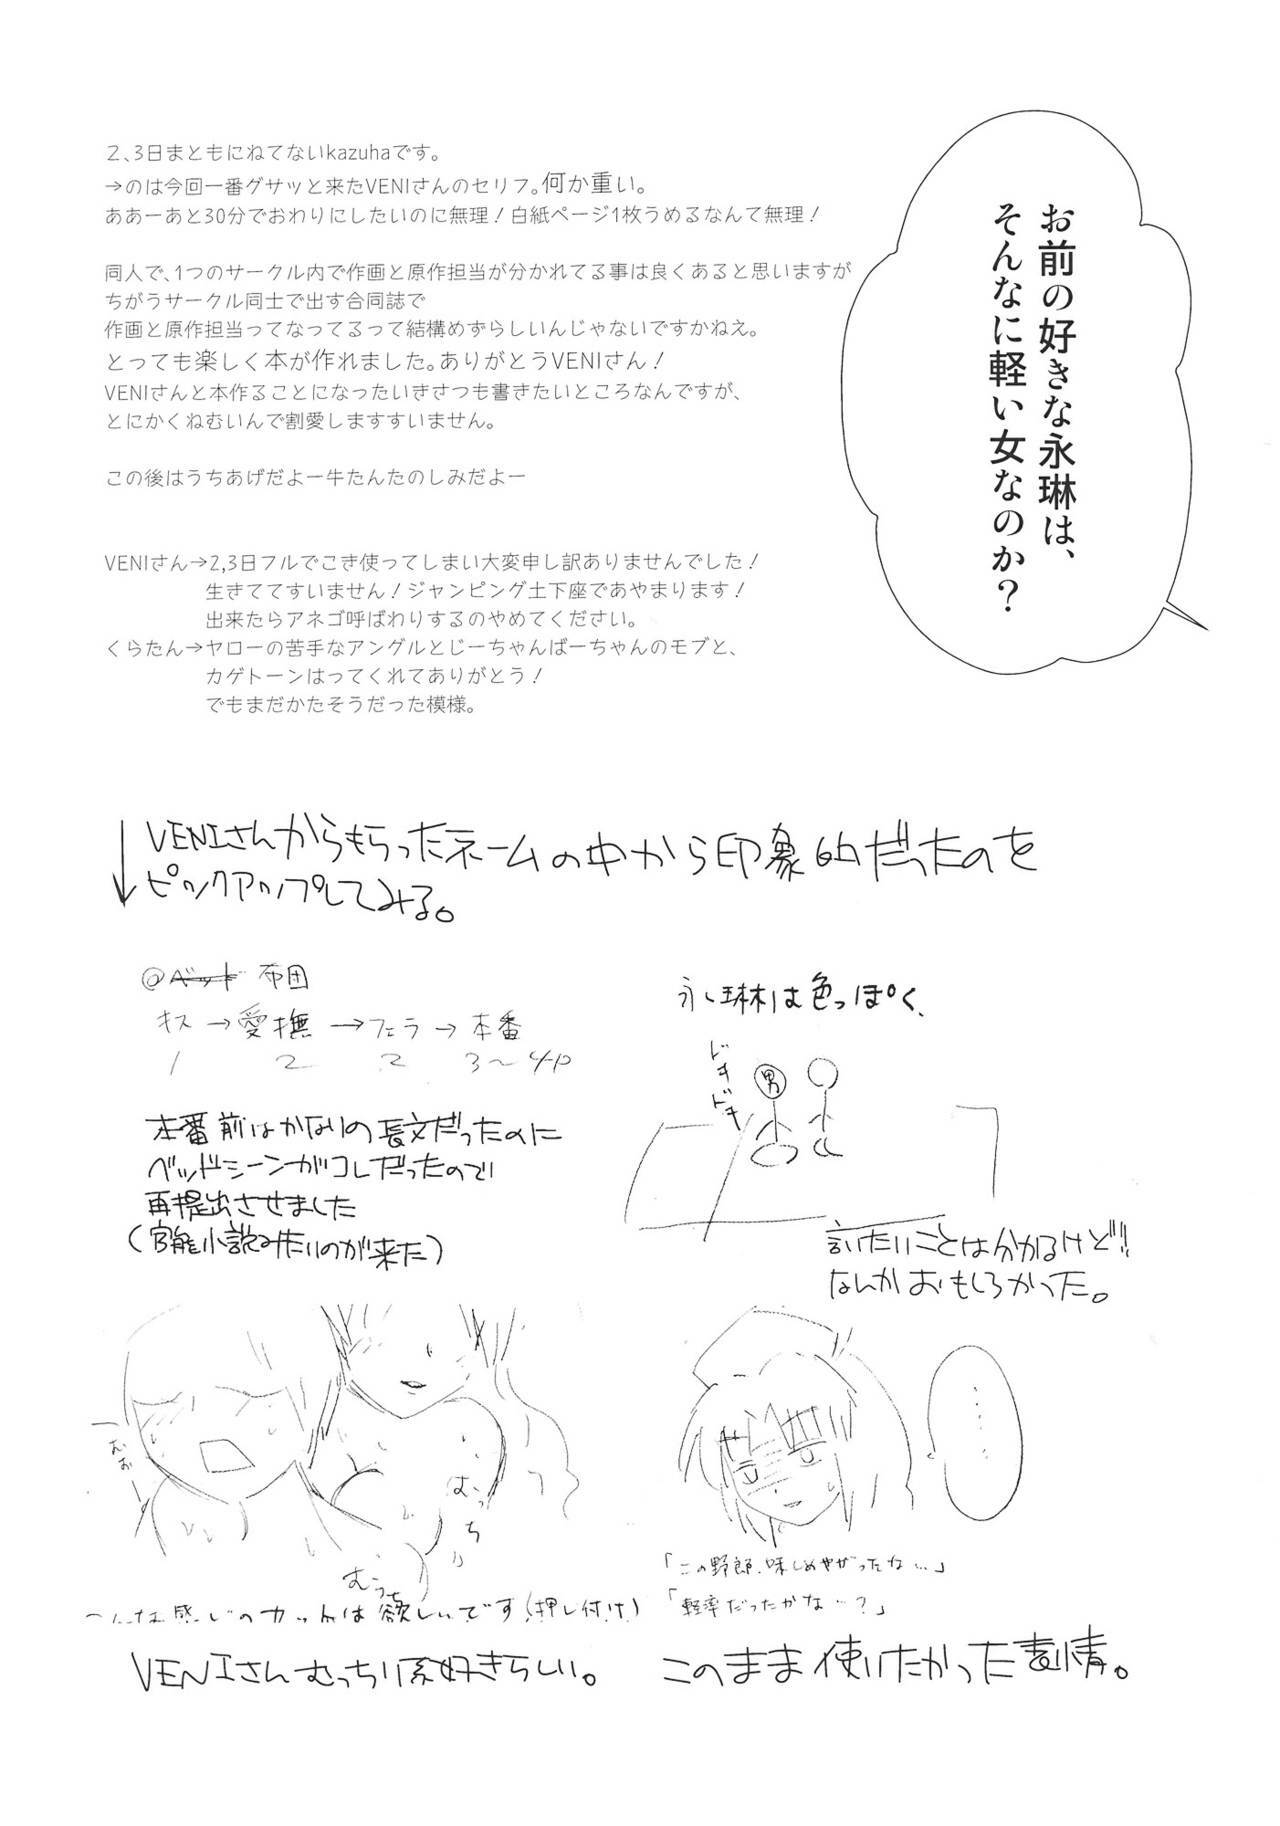 お前の好きな永琳は、
そんなに軽い女なのか？
２、３日まともにねてないkazuhaです。
→のは今回一番グサッと来たVENIさんのセリフ。何か重い。
ああーあと30分でおわりにしたいのに無理！白紙ページ1枚うめるなんて無理！
同人で、1つのサークル内で作画と原作担当が分かれてる事は良くあると思いますが
ちがうサークル同士で出す合同誌で
作画と原作担当ってなってるって結構めずらしいんじゃないですかねえ。
とっても楽しく本が作れました。ありがとうVENIさん！
VENIさんと本作ることになったいきさつも書きたいところなんですが、
とにかくねむいんで割愛しますすいません。
この後はうちあげだよー牛たんたのしみだよー
VENIさん→2,3日フルでこき使ってしまい大変申し訳ありませんでした！
生きててすいません！ジャンピング土下座であやまります！
出来たらアネゴ呼ばわりするのやめてください。
くらたん→ヤローの苦手なアングルとじーちゃんばーちゃんのモブと、
カゲトーンはってくれてありがとう！
でもまだかたそうだった模様。
↓VENIさんからもらったネームの中から印象的だったのを
ピックアップしてみる。
@ベッド 布団
キス→愛撫→フェラ→本番
1 2 2 3～4P
本番前はかなりの長文だったのに
ベッドシーンがコレだったので
再提出させました
(官能小説みたいのが来た)
永琳は色っぽく、
ドキドキ
男
言いたいことは分かるけど!!
なんかおもしろかった。
むぉー
むっちり
むっち
こんな感じのカットは欲しいです(押し付け)
VENIさんむっちり系好きらしい。
……
「この野郎、味しめやがったな…」
「軽率だったかな…？」
このまま使いたかった表情。